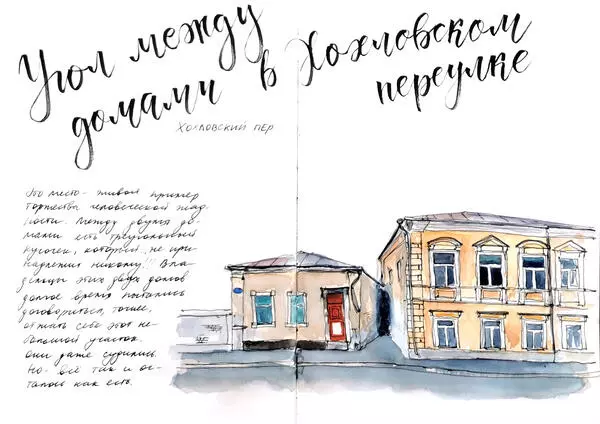 Угол между
домами в Хохловском
переулке
Хохловский пер
Это место - живой пример
торжества человеческой жад-
ности. Между двумя до-
мами есть треугольный
кусочек, который не при-
надлежит никому!!! Вла-
дельцы этих двух домов
долгое время пытались
договориться, точнее,
отжать себе этот не-
большой участок.
Они даже судились.
Но всё так и ос-
талось как есть.